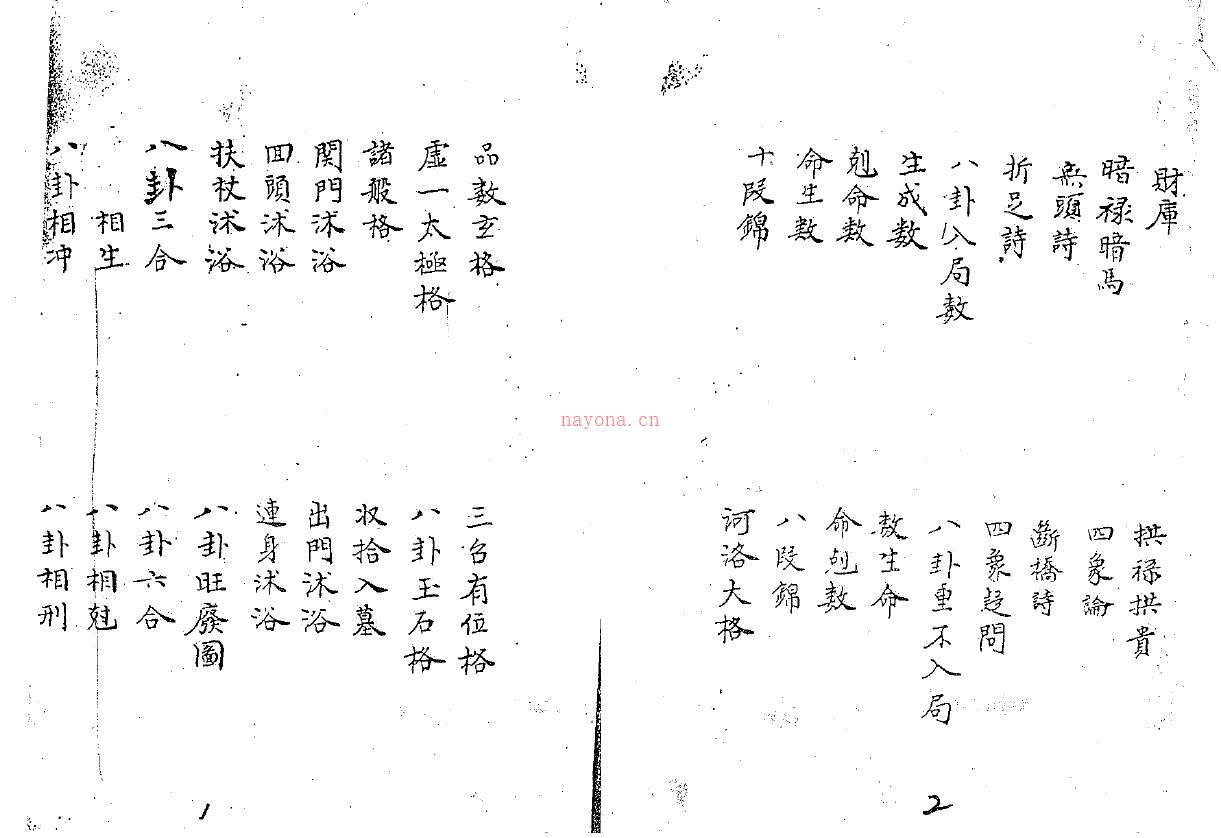 財庫
拱祿拱貴
暗祿暗馬
四象論
無頭詩
斷橋詩
折足詩
四象起問
八卦入局數
八卦重不入局
生成數
數生命
剋命數
命剋數
命生數
八段錦
十段錦
河洛大格
2
品數玄格
三台有位格
虛一太極格
八卦玉石格
諸般格
収拾入墓
関門沐浴
出門沐浴
囬頭沐浴
連身沐浴
扶杖沐浴
八卦旺廢圖
八卦三合
八卦六合
相生
八卦相尅
八卦相冲
八卦相刑
1
nayona.cn